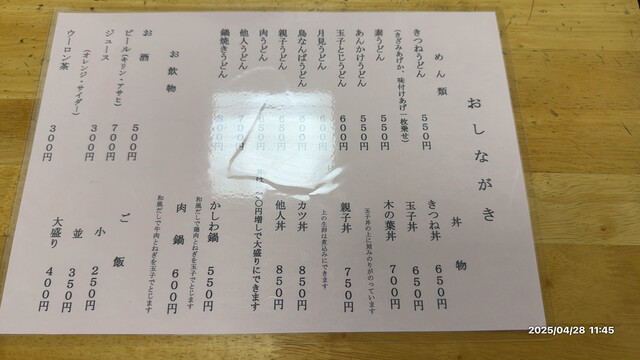 おしながき
めん類
きつねうどん 550円
(きざみあげか、味付けあげ一枚乗せ)
素うどん 550円
あんかけうどん 550円
玉子とじうどん 600円
月見うどん 600円
鳥なんばうどん
親子うどん
肉うどん
他人うどん
鍋焼きうどん
丼物
きつね丼 650円
玉子丼 650円
木の葉丼 700円
玉子丼の上に刻みのりがのっています
親子丼 750円
上の生卵は煮込みにできます
カツ丼 850円
他人丼 850円
円増しで大盛りにできます
かしわ鍋 550円
和風だしで鶏肉とねぎを玉子でとじます
肉鍋 600円
和風だしで牛肉とねぎを玉子でとじます
お飲物
お酒 500円
ビール(キリン・アサヒ) 700円
ジュース 300円
(オレンジ・サイダー)
ウーロン茶 300円
ご飯
小 250円
並 350円
大盛り 400円
2025/04/28 11:45